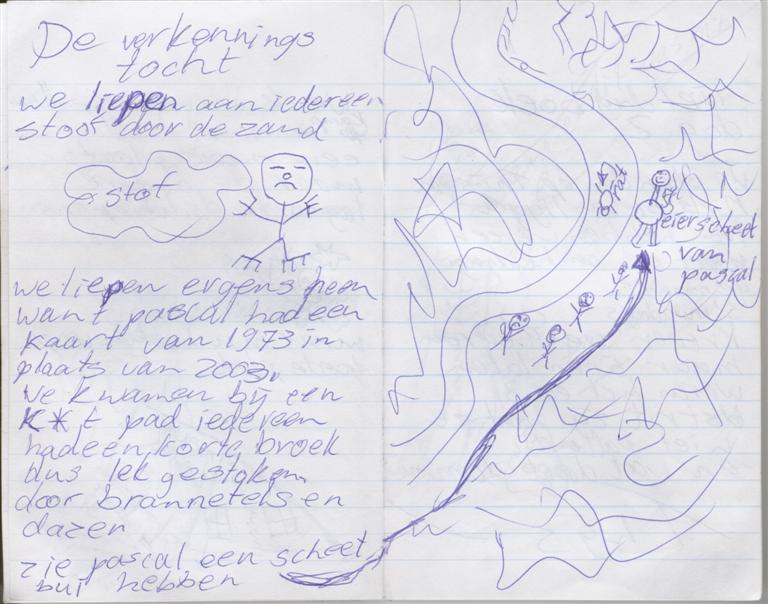 De verkennings
tocht
we liepen aan iedereen
stoof door de zand
stof
we liepen ergens heen
want pascal had een
kaart van 1973 in
plaats van 2003,
We kwamen bij een
K*t pad iedereen
had een korte broek
dus lek gestoken
door brannetels en
dazen
zie pascal een scheet
bui hebben
eierscheet
van
pascal